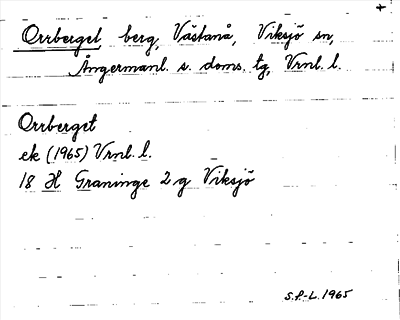 +
Orrberget, berg, Västanå, Viksjö sn,
Ångermanl. s. doms. tg, Vrnl. l.
Orrberget
ek (1965) Vrnl. l.
18 H Graninge 2 g Viksjö
S.P-L. 1965